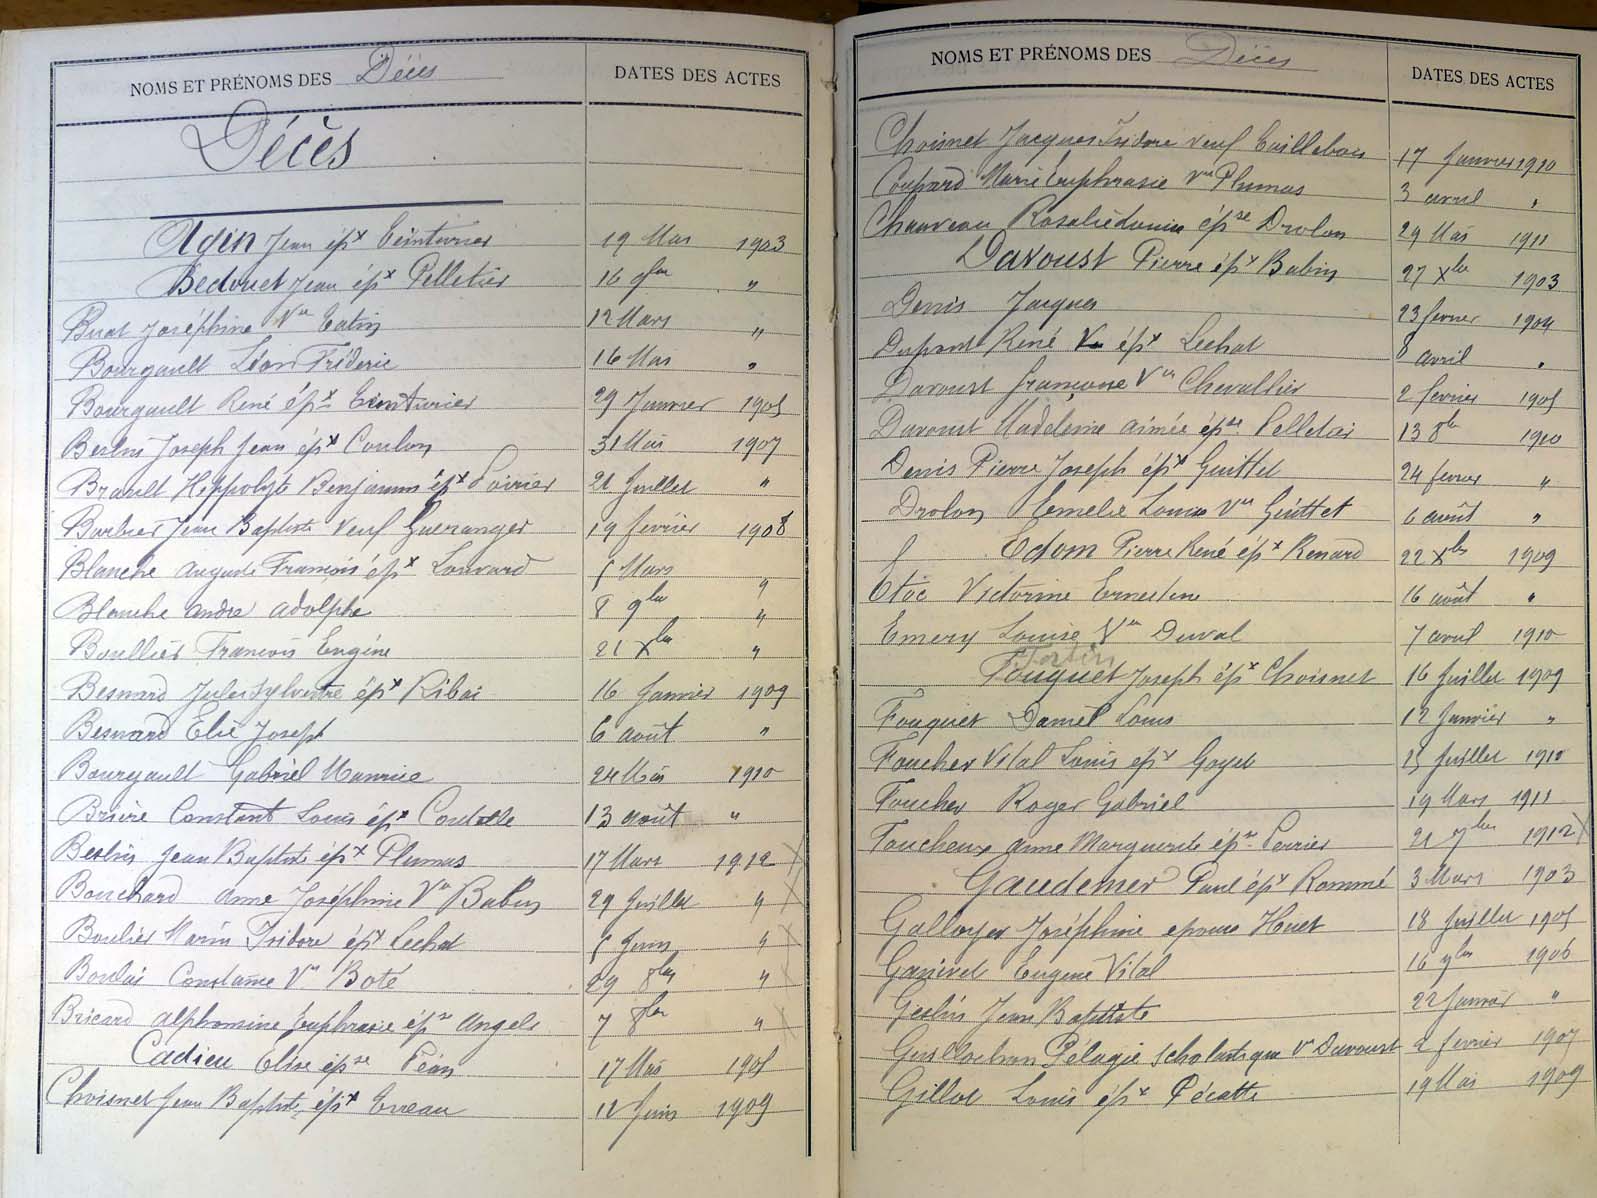 NOMS ET PRÉNOMS DES Décès DATES DES ACTES
Décès
Agin Jean épx Ceinturier 19 Mai 1903
Bedouet Jean épx Pelletier 16 9bre "
Buat Joséphine Vve Catin 12 Mars "
Bourgault Léon Fréderic 16 Mai "
Bourgault René épx Ceinturier 29 Janvier 1905
Beslin Joseph Jean épx Coulon 31 Mai 1907
Brault Hippolyte Benjamin épx Poirier 21 Juillet "
Barbier Jean Baptiste veuf Gueranger 19 février 1908
Blanche Auguste François épx Louvard 5 Mars "
Blanche André Adolphe 8 9bre "
Boullier François Eugène 21 Xbre "
Besnard Jules Sylvestre épx Ribot 16 Janvier 1909
Besnard Élie Joseph 6 août "
Bourgault Gabriel Maurice 24 Mai 1910
Brière Constant Louis épx Cordelle 13 août "
Beslin Jean Baptiste épx Plumas 17 Mars 1912 X
Bouchard Anne Joséphine Vve Babin 29 Juillet " X
Boulier Marin Isidore épx Lechat 5 Juin " X
Boulai Constance Vve Boté 29 8bre " X
Bricard Alphonsine Euphrasie épse Angele 7 8bre " X
Cadieu Élise épse Péan 17 Mai 1905
Choisnet Jean Baptiste épx Erreau 12 Juin 1909
NOMS ET PRÉNOMS DES Décès DATES DES ACTES
Choisnet Jacques Isidore veuf Taillebois 17 Janvier 1910
Coupard Marie Euphrasie Vve Plumas 3 avril "
Chauveau Rosalie Louise épse Drolon 29 Mai 1911
Davoust Pierre épx Babin 27 Xbre 1903
Denis Jacques 23 février 1904
Dupont René épx Lechat 8 avril "
Davoust Françoise Vve Chevallier 2 février 1905
Davoust Madeleine Aimée épse Pelletier 13 8bre 1910
Denis Pierre Joseph épx Guittet 24 février "
Drolon Emelie Louise Vve Guittet 6 août "
Edom Pierre René épx Renard 22 Xbre 1909
Etoc Victorine Ernestine 16 août "
Emery Louise Vve Duval 7 avril 1910
Fortin
Fouquet Joseph épx Choisnet 16 Juillet 1909
Fouquet Daniel Louis 12 Janvier "
Foucher Vital Louis épx Goyet 15 Juillet 1910
Foucher Roger Gabriel 19 Mars 1911
Foucheux Anne Marguerite épse Perrier 21 7bre 1912 X
Gaudemer Paul épx Rommé 3 Mars 1903
Galloyer Joséphine epouse Huet 18 Juillet 1905
Ganivet Eugène Vital 16 9bre 1906
Geslin Jean Baptiste 22 Janvier "
Guillochon Pélagie Scholastique Vve Davoust 2 février 1907
Gillot Louis épx Pécatte 19 Mai 1909